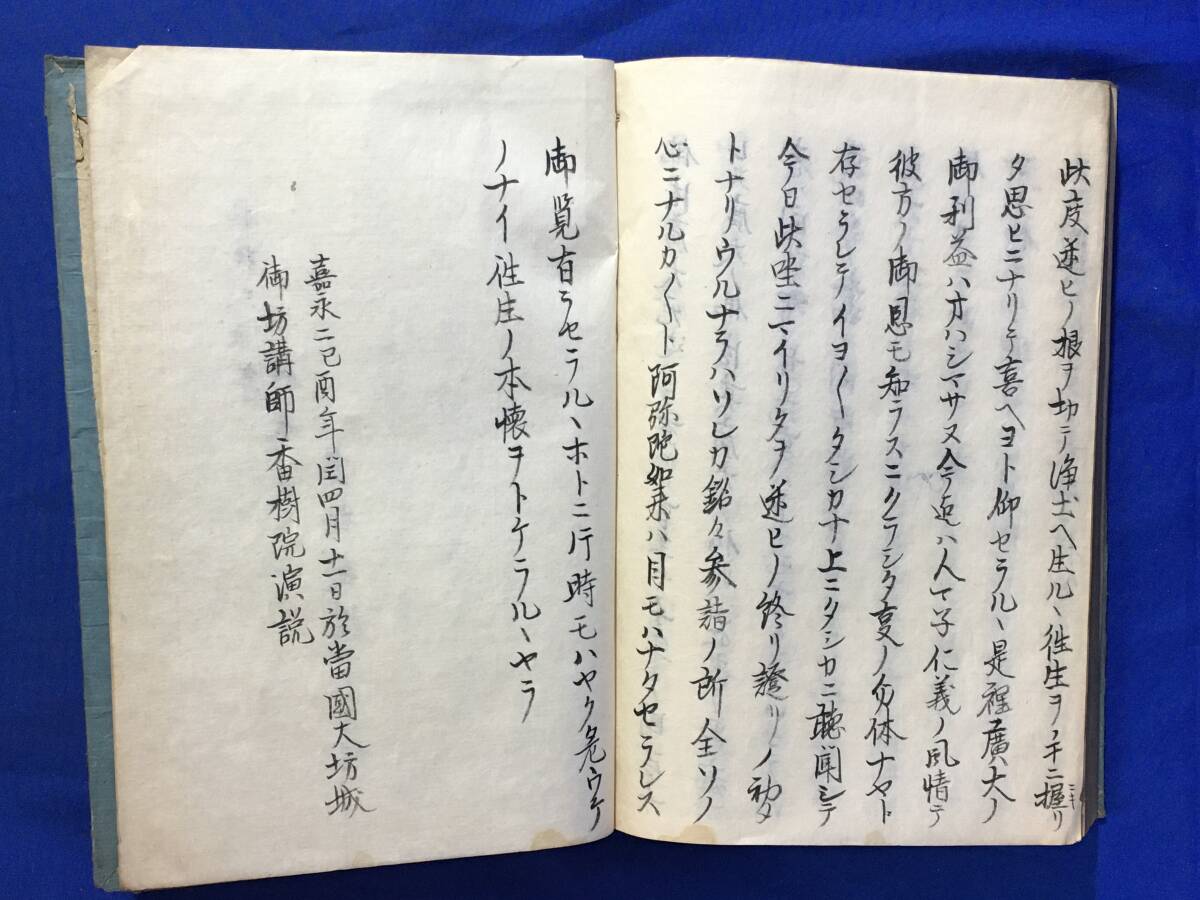 此度迷ヒノ根ヲ切テ浄土ヘ生ルヽ徃生ヲノ手ニ握リ
タ思ヒニナリテ喜ヘヨト仰セラルヽ是程廣大ノ
御利益ハオハシマサヌ今迄ハ人テ子仁義ノ風情テ
彼方ノ御恩モ知ラスニクラシタ変ノ体ナヤト
存セラレテイヨ〱タシカナ上ニタシカニ聴聞シテ
今日此坐ニマイリタヲ迷ヒノ終リ證リノ初タ
トナリウルナラハソレカ銘々参詣ノ所全ソノ
心ニナルカ〱ト阿弥陀如来ハ目モハナタセラレス
御覧有ラセラルヽホトニ片時モハヤク危ウケ
ノナイ徃生ノ本懐ヲトケラルヽヤラ
嘉永二己酉年閏四月十一日於當國大坊城
御坊講師香樹院演説